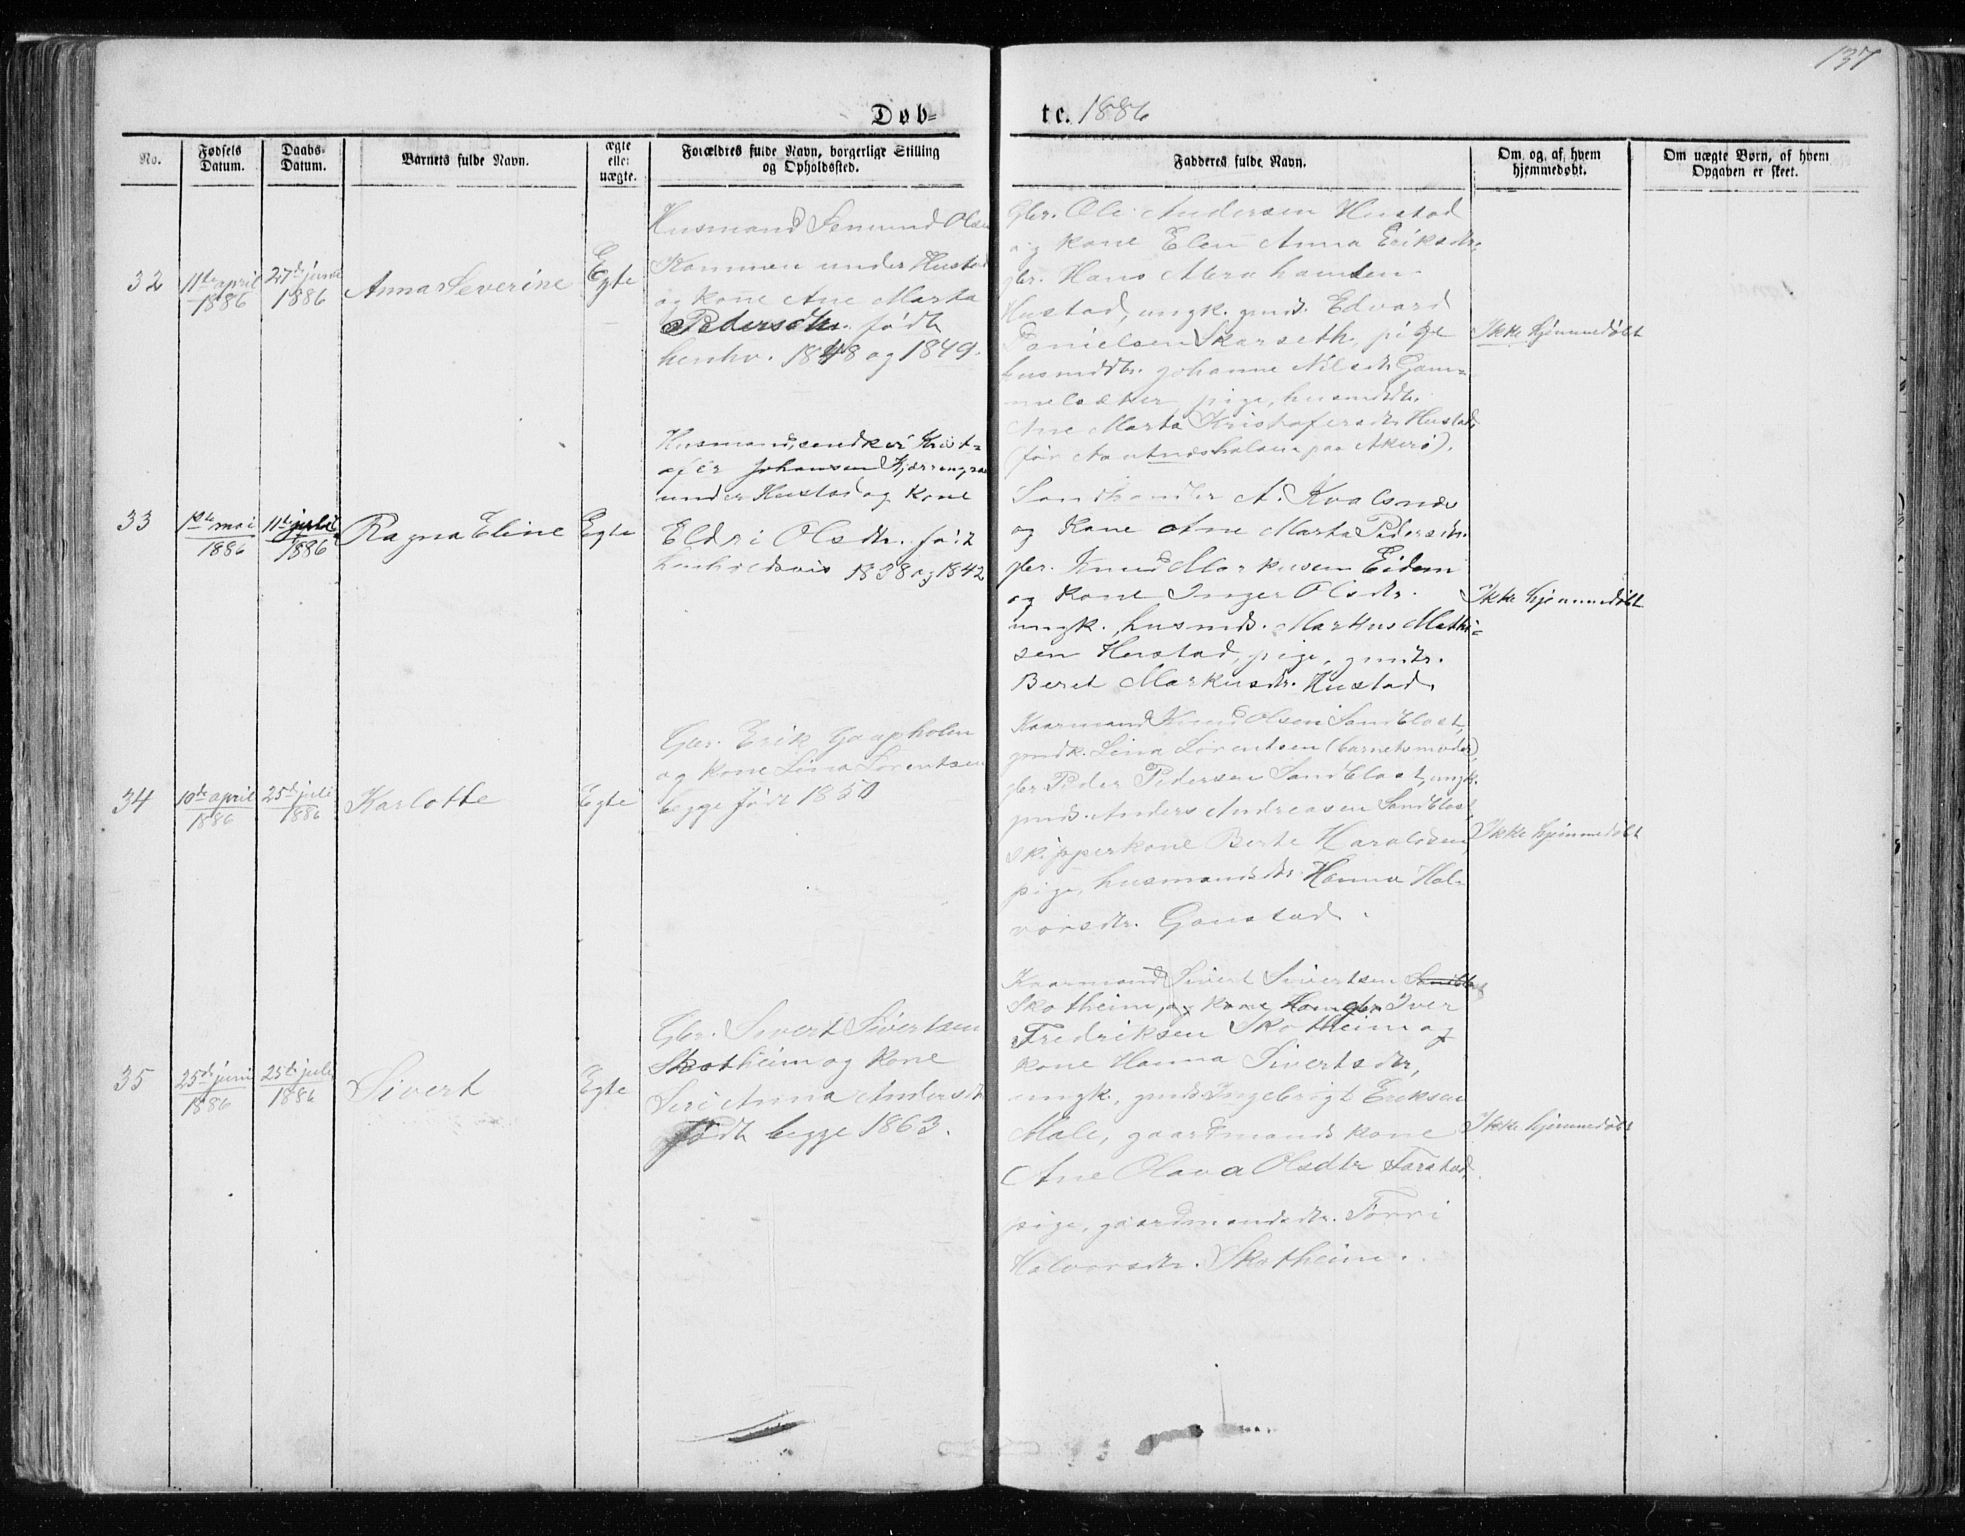 137
Døb-
te. 1886
No.
Fødsels Datum.
Daabs-Datum.
Barnets fulde Navn.
ægte eller uægte.
Forældres fulde Navn, borgerlige Stilling og Opholdssted.
Fadderes fulde Navn.
Om og af hvem hjemmedøbt.
Om uægte Børn, af hvem Opgaven er skeet.
32
11te april 1886
27de juni 1886
Anna Severine
Egte
Husmand Olsen
under Hustad
og kone Ane Marta
Pedersdtr. født
henhv. 1848 og 1849.
Gbr. Ole Andersen Hustad
og kone Elen Anna Eriksdtr.
gbr. Hans Abrahamsen
Hustad, ungk. gmds. Edvard
Danielsen Skarseth, pige
husmdtr. Johanne Nilsdtr. Gam-
melsæter, pige, husmdtr.
Ane Marta Kristofersdtr. Hustad
paa Akerø).
Ikke hjemmedøbt
33
mai 1886
11te juli 1886
Ragna Eline
Egte
Husmand, Krist-
ofer Johansen
under Hustad og kone
Eldri Olsdtr. født
henholdsvis 1838 og 1842
Landhandler A. Kvalsnes
og kone Ane Marta Pedersdtr.
gbr. Knud Markusen Eidem
og kone Inger Olsdtr.
ungk. husmds. Markus Mathi-
sen Hustad, pige, gmdtr.
Beret Markusdtr. Hustad.
Ikke hjemmedøbt
34
10de april 1886
25de juli 1886
Karlotte
Egte
Gbr. Erik Gaapholen
og kone Lina Lorentsen
begge født 1850
Kaarmand Knud Olsen Sandblast,
gmdk. Lina Lorentsen (barnets moder),
gbr. Peder Pedersen Sandblast, ungk.
gmds. Anders Andreasen Sandblast,
skipperkone Berte Haraldsen,
pige, husmandsdtr. Hanna Hal-
vorsdtr. Gaustad.
Ikke hjemmedøbt
35
25de juni 1886
25de juli 1886
Sivert
Egte
Gbr. Sivert Sivertsen
Skotheim og kone
Siri Anna Andersdtr.
født begge 1863.
Kaarmand Sivert Sivertsen
Skotheim, og kone gbr. Iver
Fredriksen Skotheim og
kone Hanna Sivertsdtr,
ungk, gmds. Ingebrigt Eriksen
Male, gaardmands kone
Ane Olava Olsdtr Farstad,
pige, gaardmandsdtr.
Halvorsdtr. Skotheim.
Ikke hjemmedøbt